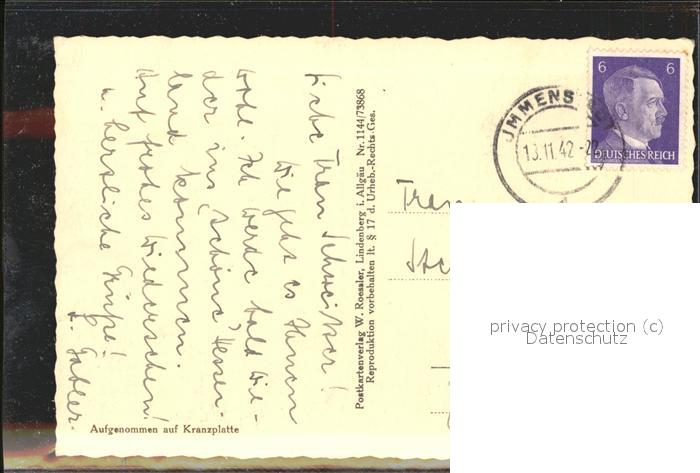 Liebe Frau Schweitzer!
Wie geht es Ihnen
wohl. Ich werde bald wie-
der ins "schöne" Hessen-
land kommen.
Auf frohes Wiedersehen!
u. herzliche Grüße!
Gabler.
Aufgenommen auf Kranzplatte
Postkartenverlag W. Roessler, Lindenberg i. Allgäu Nr. 1144/73868
Reproduktion vorbehalten lt. § 17 d. Urheb.-Rechts-Ges.
JMMENS
13.11.42
6 6
DEUTSCHES REICH
privacy protection (c)
Datenschutz